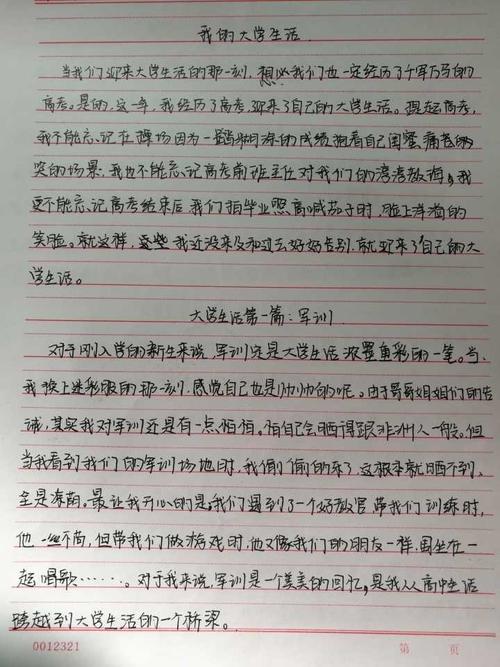 我的大学生活
当我们迎来大学生活的那一刻,想必我们也一定经历了千军万马的
高考。是的,这一年,我经历了高考,迎来了自己的大学生活。提起高考,
我不能忘记在操场因为一踏糊涂的成绩抱着自己闺蜜痛苍的
哭的场景,我也不能忘记高考前班主任对我们的谆谆教诲,我
更不能忘记高考结束后我们拍毕业照高喊茄子时,脸上洋溢的
笑脸。就这样,我还没来及和过去好好告别,就迎来了自己的大
学生活。
大学生活第一篇:军训
对于刚入学的新生来说,军训定是大学生活浓墨重彩的一笔。当
我换上迷彩服的那一刻,感觉自己也是帅帅的呢。由于哥哥姐姐们的告
诫,其实我对军训还是有一点怕怕。怕自己会晒得跟非洲人一般。但
当我看到我们的军训场地时,我偷偷的乐了,这根本就晒不到,
全是凉荫。最让我开心的是我们遇到了一个好教官,带我们训练时,
他一丝不苟,但带我们做游戏时,他又像我们的朋友一样,围坐在一
起唱歌……。对于我来说,军训是一个美美的回忆,是我从高中生活
跨越到大学生活的一个桥梁。
0012321
第 页